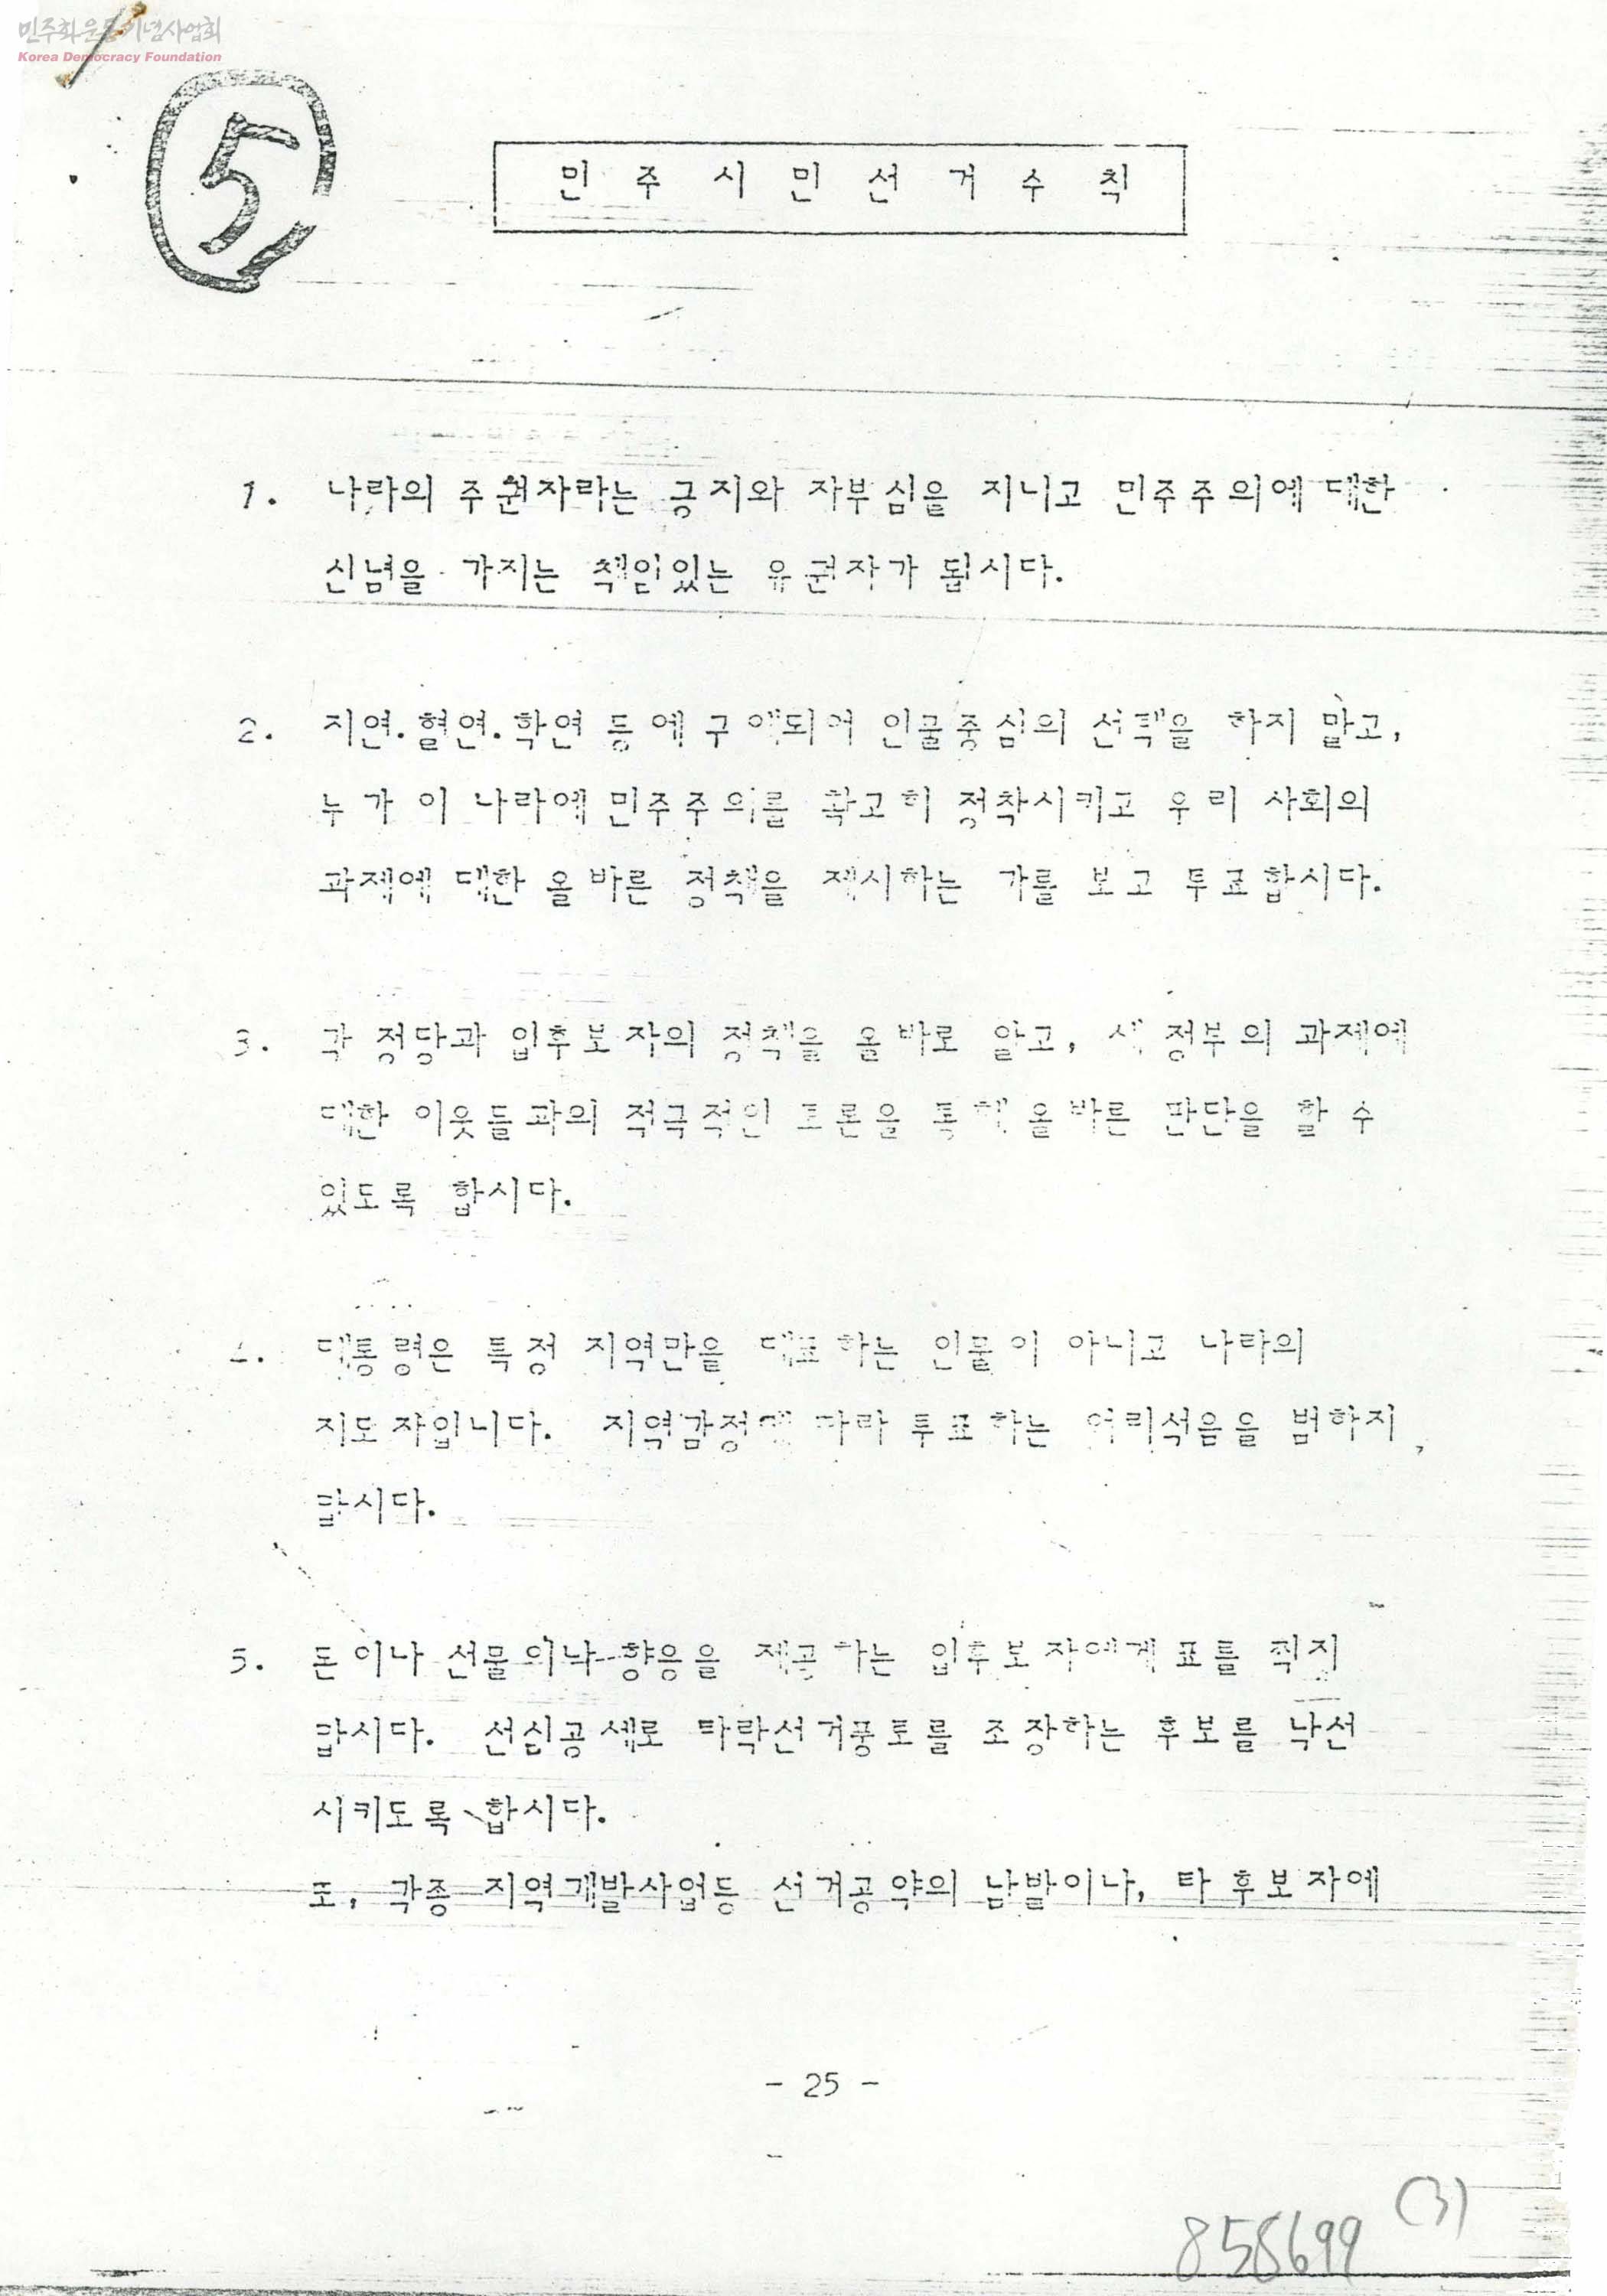 민주화운동기념사업회
Korea Democracy Foundation
5
민 주 시 민 선 거 수 칙
1. 나라의 주권자라는 긍지와 자부심을 지니고 민주주의에 대한
신념을 가지는 책임있는 유권자가 됩시다.
2. 지연.혈연.학연 등에 구애되어 인물중심의 선택을 하지 말고,
누가 이 나라에 민주주의를 확고히 정착시키고 우리 사회의
과제에 대한 올바른 정책을 제시하는 가를 보고 투표합시다.
3. 각 정당과 입후보자의 정책을 올바로 알고, 새 정부의 과제에
대한 이웃들과의 적극적인 토론을 통해 올바른 판단을 할 수
있도록 합시다.
4. 대통령은 특정 지역만을 대표하는 인물이 아니고 나라의
지도자입니다. 지역감정에 따라 투표하는 어리석음을 범하지
맙시다.
5. 돈이나 선물이나 향응을 제공하는 입후보자에게 표를 찍지
맙시다. 선심공세로 타락선거풍토를 조장하는 후보를 낙선
시키도록 합시다.
또, 각종 지역개발사업등 선거공약의 남발이나, 타 후보자에
- 25 -
858699 (3)